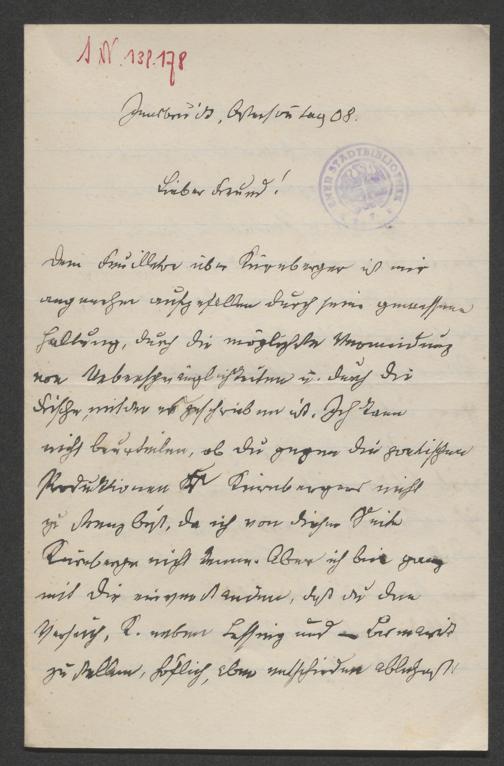 I.N. 138.178
Innsbruck, Ostersonntag 08.
WIENER STADTBIBLIOTHEK
Lieber Freund!
Dein Feuilleton über Kürnberger ist mir
angenehm aufgefallen durch seine gemessene
Haltung, durch die möglichste Vermeidung
von Ueberschwänglichkeiten u. durch die
Frische, mit der es geschrieben ist. Ich kann
nicht beurteilen, ob du gegen die poetischen
Produktionen Kürnbergers nicht
zu streng bist, da ich von dieser Seite
Kürnberger nicht kenne. Aber ich bin ganz
mit Dir einverstanden, daß du den
Versuch, K. neben Lessing und
zu stellen, höflich, aber entschieden ablehnst!